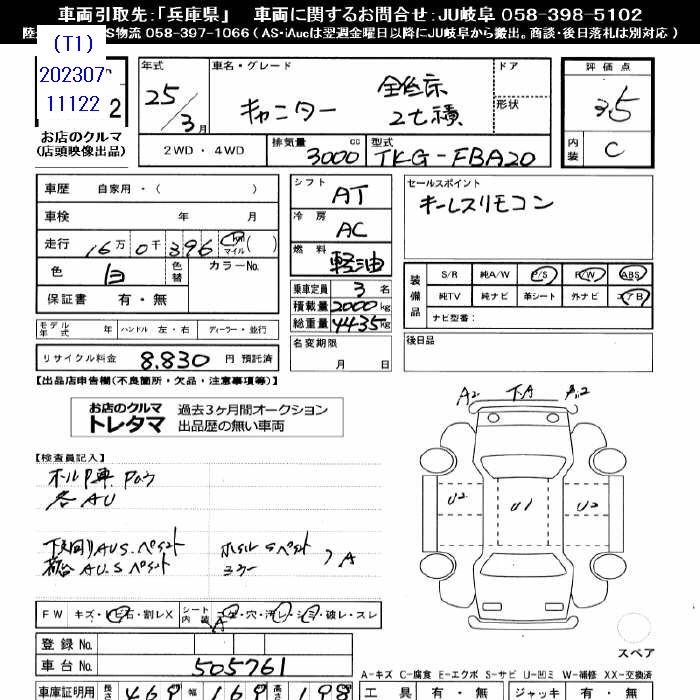 車両引取先：「兵庫県」　車両に関するお問合せ：JU岐阜 058-398-5102
S物流 058-397-1066 ( AS･iAucは翌週金曜日以降にJU岐阜から搬出。商談・後日落札は別対応 )
(T1)
202307
11122
2
お店のクルマ
(店頭映像出品)
年式 25/3月
車名・グレード キャンター 全低床 2t積
ドア
形状
評価点 3.5
内装 C
2WD・4WD
排気量 3000 cc
型式 TKG-FBA20
車歴 自家用・( )
車検 年 月
走行 16万0千396 km マイル ( )
色 白 色替 カラーNo.
保証書 有・無
シフト AT
冷房 AC
燃料 軽油
乗車定員 3 名
積載量 2000 kg
総重量 4435 kg
セールスポイント
キーレスリモコン
装備品 S/R 純A/W P/S P/W ABS
純TV 純ナビ 革シート 外ナビ エアB
ナビ型番：
モデル年式 年 ハンドル 左・右 ディーラー・並行
名変期限
月 日
後日品
リサイクル料金 8,830 円 預託済
【出品店申告欄(不良箇所・欠品・注意事項等)】
お店のクルマ
トレタマ
過去3ヶ月間オークション
出品歴の無い車両
A2 下A
【検査員記入】
各AU
下回りAUS.ペイント
荷台AU.Sペイント
ホイルSペイント
ミラー
A
U2 U1 U2
FW キズ・ヒビ石・割レX シート内装 コゲ・穴・汚レ・シミ・破レ・スレ
A
登録No.
車台No. 505761
スペア
A-キズ C-腐食 E-エクボ S-サビ U-凹ミ W-補修 XX-交換済
車庫証明用 長さ 469 幅 169 高さ 198
工具 有・無 ジャッキ 有・無